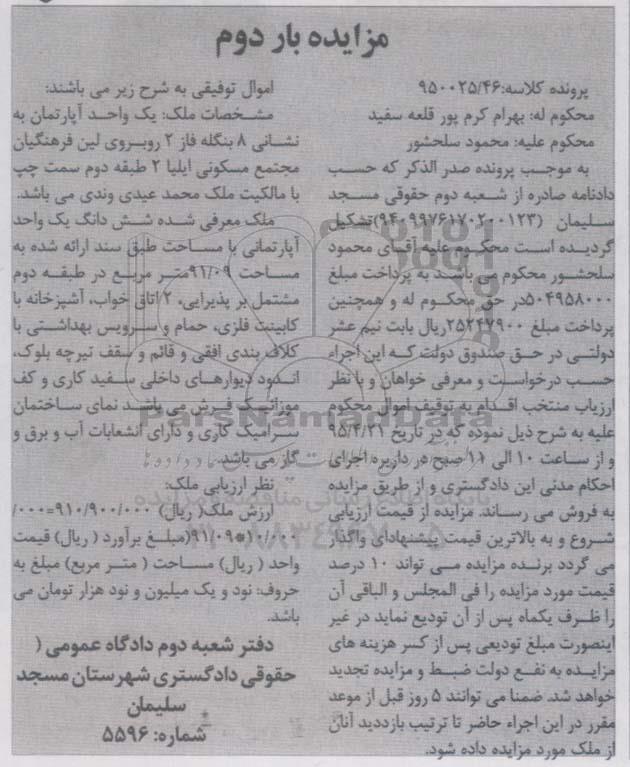 مزایده بار دوم
پرونده کلاسه:۹۵۰۰۲۵/۴۶
محکوم له: بهرام کرم پور قلعه سفید
محکوم علیه: محمود سلحشور
به موجب پرونده صدر الذکر که حسب
دادنامه صادره از شعبه دوم حقوقی مسجد
سلیمان (۹۴۰۹۹۷۶۱۷۰۲۰۰۱۲۳)تشکیل
گردیده است محکوم علیه آقای محمود
سلحشور محکوم می باشد به پرداخت مبلغ
۵۰۴۹۵۸۰۰۰در حق محکوم له و همچنین
پرداخت مبلغ ۲۵۲۴۷۹۰۰ریال بابت نیم عشر
دولتی در حق صندوق دولت که این اجراء
حسب درخواست و معرفی خواهان و با نظر
ارزیاب منتخب اقدام به توقیف اموال محکوم
علیه به شرح ذیل نموده که در تاریخ ۹۵/۴/۲۱
و از ساعت ۱۰ الی ۱۱ صبح در دایره اجرای
احکام مدنی این دادگستری و از طریق مزایده
به فروش می رساند. مزایده از قیمت ارزیابی
شروع و به بالاترین قیمت پیشنهادای واگذار
می گردد برنده مزایده می تواند ۱۰ درصد
قیمت مورد مزایده را فی المجلس و الباقی آن
را ظرف یکماه پس از آن تودیع نماید در غیر
اینصورت مبلغ تودیعی پس از کسر هزینه های
مزایده به نفع دولت ضبط و مزایده تجدید
خواهد شد. ضمنا می توانند ۵ روز قبل از موعد
مقرر در این اجراء حاضر تا ترتیب بازددید آنان
از ملک مورد مزایده داده شود.
اموال توفیقی به شرح زیر می باشند:
مشخصات ملک: یک واحد آپارتمان به
نشانی ۸ بنگله فاز ۲ روبروی لین فرهنگیان
مجتمع مسکونی ایلیا ۲ طبقه دوم سمت چپ
با مالکیت ملک محمد عیدی وندی می باشد.
ملک معرفی شده شش دانگ یک واحد
آپارتمانی با مساحت طبق سند ارائه شده به
مساحت ۹۱/۰۹متر مربع در طبقه دوم
مشتمل بر پذیرایی، ۲ اتاق خواب، آشپزخانه با
کابینت فلزی، حمام و سرویس بهداشتی با
کلاف بندی افقی و قائم و سقف تیرچه بلوک،
اندود دیوارهای داخلی سفید کاری و کف
موزائیک فرش می باشد نمای ساختمان
سرامیک کاری و دارای انشعابات آب و برق و
گاز می باشد.
نظر ارزیابی ملک:
ارزش ملک( ریال) ۹۱۰/۹۰۰/۰۰۰=۰۰۰/
۱۰/۰۰۰*۹۱/۰۹(مبلغ برآورد ( ریال) قیمت
واحد ( ریال) مساحت ( متر مربع) مبلغ به
حروف: نود و یک میلیون و نود هزار تومان می
باشد.
دفتر شعبه دوم دادگاه عمومی (
حقوقی دادگستری شهرستان مسجد
سلیمان
شماره: ۵۵۹۶
ParsNamadData